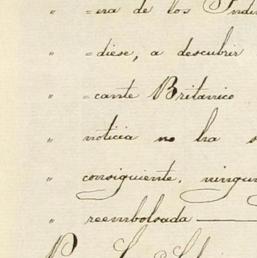 " =era de los Indi
" =diese, a descubrir
" =cante Britanico
" noticia no ha s
" consiguiente, ningun
" reembolsada —